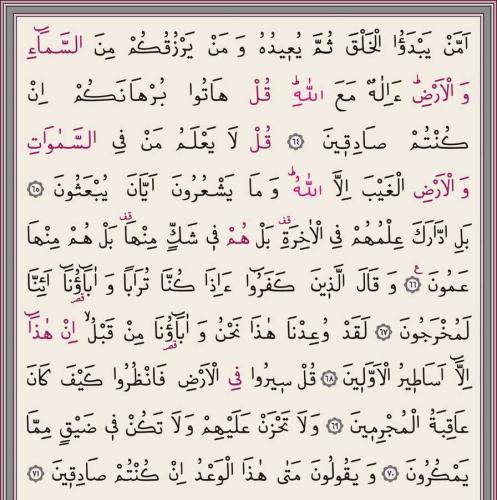 اَمَّنْ يَبْدَؤُا الْخَلْقَ ثُمَّ يُعٖيدُهُ وَ مَنْ يَرْزُقُكُمْ مِنَ السَّمَٓاءِ
وَ الْاَرْضِؕ ءَاِلٰهٌ مَعَ اللّٰهِؕ قُلْ هَاتُوا بُرْهَانَكُمْ اِنْ
كُنْتُمْ صَادِقٖينَ ﴿٦٤﴾ قُلْ لَا يَعْلَمُ مَنْ فِي السَّمٰوَاتِ
وَ الْاَرْضِ الْغَيْبَ اِلَّا اللّٰهُؕ وَ مَا يَشْعُرُونَ اَيَّانَ يُبْعَثُونَ ﴿٦٥﴾
بَلِ ادَّارَكَ عِلْمُهُمْ فِي الْاٰخِرَةِࣞ بَلْ هُمْ فٖي شَكٍّ مِنْهَاࣞ بَلْ هُمْ مِنْهَا
عَمُونَ ﴿٦٦﴾ وَ قَالَ الَّذٖينَ كَفَرُٓوا ءَاِذَا كُنَّا تُرَابًا وَ اٰبَٓاؤُنَٓا اَئِنَّا
لَمُخْرَجُونَ ﴿٦٧﴾ لَقَدْ وُعِدْنَا هٰذَا نَحْنُ وَ اٰبَٓاؤُنَا مِنْ قَبْلُۙ اِنْ هٰذَٓا
اِلَّٓا اَسَاطٖيرُ الْاَوَّلٖينَ ﴿٦٨﴾ قُلْ سٖيرُوا فِي الْاَرْضِ فَانْظُرُوا كَيْفَ كَانَ
عَاقِبَةُ الْمُجْرِمٖينَ ﴿٦٩﴾ وَلَا تَحْزَنْ عَلَيْهِمْ وَلَا تَكُنْ فٖي ضَيْقٍ مِمَّا
يَمْكُرُونَ ﴿٧٠﴾ وَ يَقُولُونَ مَتٰى هٰذَا الْوَعْدُ اِنْ كُنْتُمْ صَادِقٖينَ ﴿٧١﴾